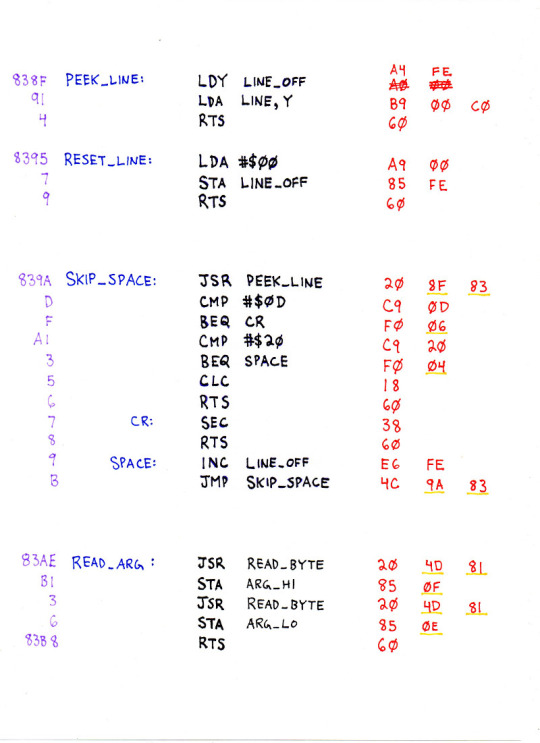 838F PEEK_LINE: LDY LINE_OFF A4 FE
A0 00
91 LDA LINE, Y B9 00 C0
4 RTS 60
8395 RESET_LINE: LDA #$00 A9 00
7 STA LINE_OFF 85 FE
9 RTS 60
839A SKIP_SPACE: JSR PEEK_LINE 20 8F 83
D CMP #$0D C9 0D
F BEQ CR F0 06
A1 CMP #$20 C9 20
3 BEQ SPACE F0 04
5 CLC 18
6 RTS 60
7 CR: SEC 38
8 RTS 60
9 SPACE: INC LINE_OFF E6 FE
B JMP SKIP_SPACE 4C 9A 83
83AE READ_ARG: JSR READ_BYTE 20 4D 81
B1 STA ARG_HI 85 0F
3 JSR READ_BYTE 20 4D 81
6 STA ARG_LO 85 0E
83B8 RTS 60